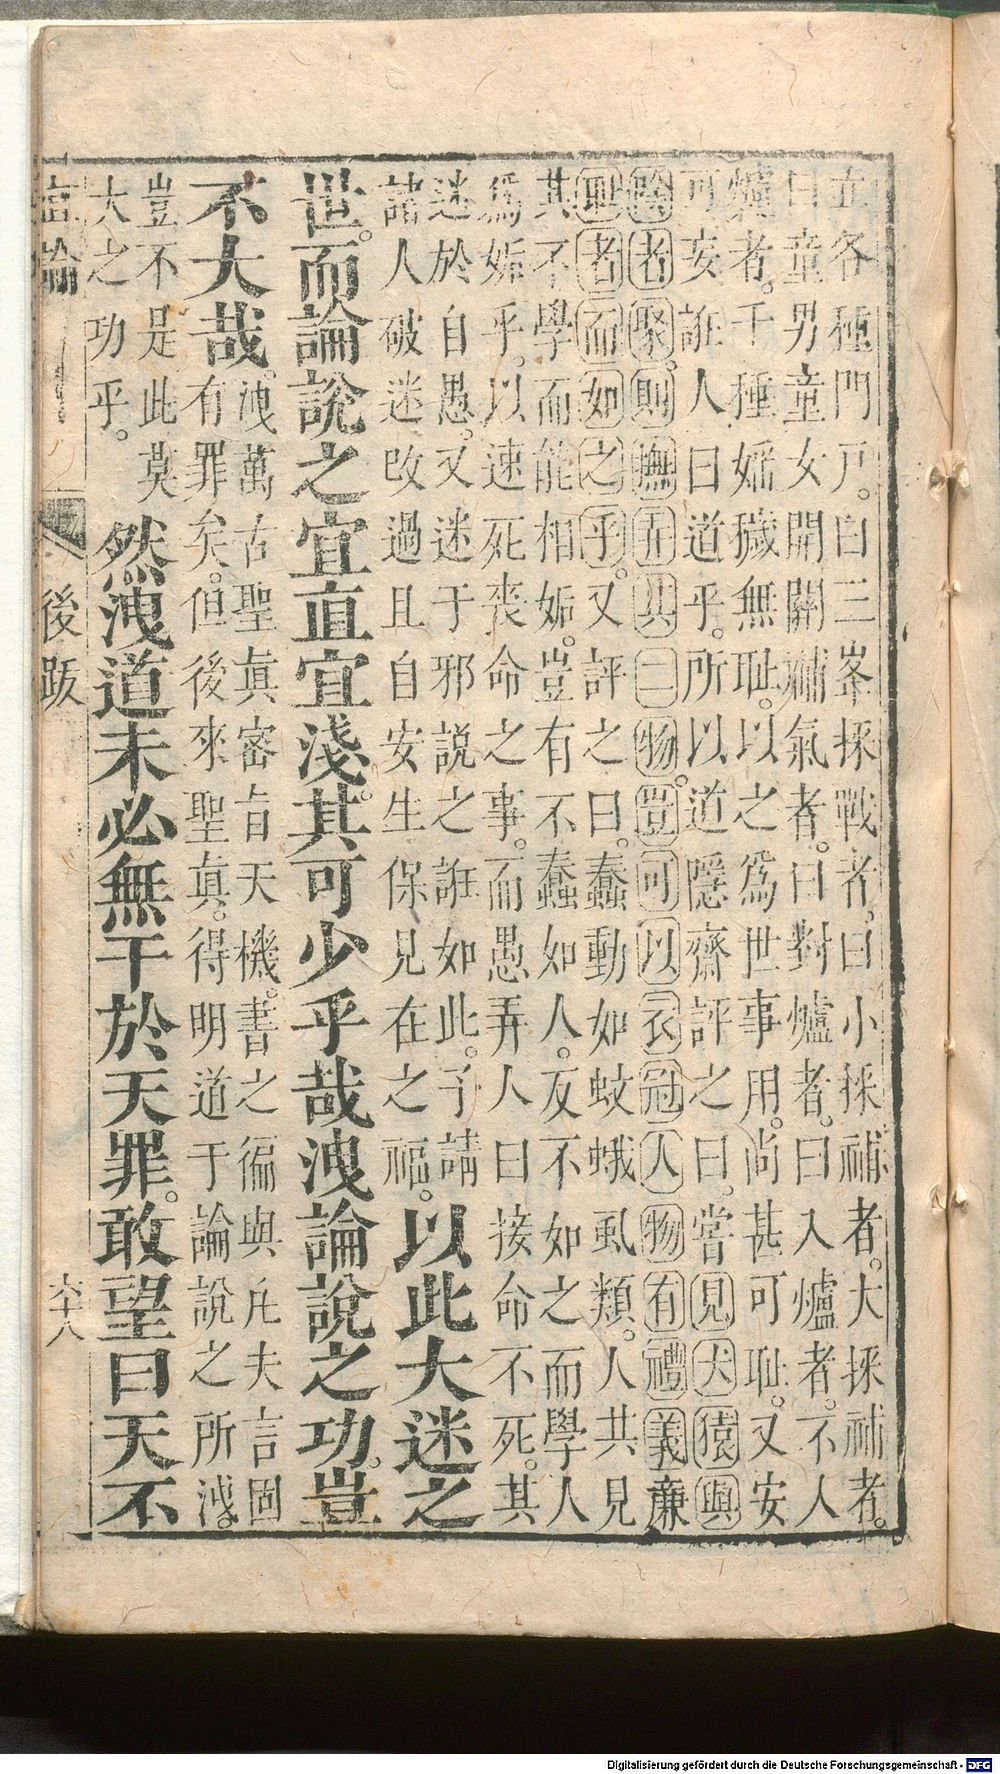 立各種門戸。曰三峯採戰者。曰小採補者。大採補者。
曰童男童女開關補氣者。曰對爐者。曰入爐者。不人
爐者。千種婬穢無恥。以之爲世事用。尚甚可恥。又安
可妄誑人曰道乎。所以道隱齋評之曰。嘗見犬猿與
者聚。則撫弄其二物。豈可以衣冠人物有禮義亷
恥者而如之乎。又評之曰。蠢動如蚊蛾虱類。人共見
其不學而能相姤。豈有不蠢如人。反不如之而學人
爲姤乎。以速死喪命之事。而愚弄人曰接命不死。其
迷於自愚。又迷于邪說之誑如此。予請
諸人破迷改過且自安生保見在之福。
以此大迷之
世。而論說之宜直宜淺。其可少乎哉洩論說之功。豈
不大哉。
洩萬古聖眞密旨天機。書之徧與凡夫言固
有罪矣。但後來聖眞。得明道于論說之所洩。
豈不是此莫
大之功乎。
然洩道未必無干於天罪。敢望曰天不
直論
後跋
六十八
Digitalisierung gefördert durch die Deutsche Forschungsgemeinschaft - DFG